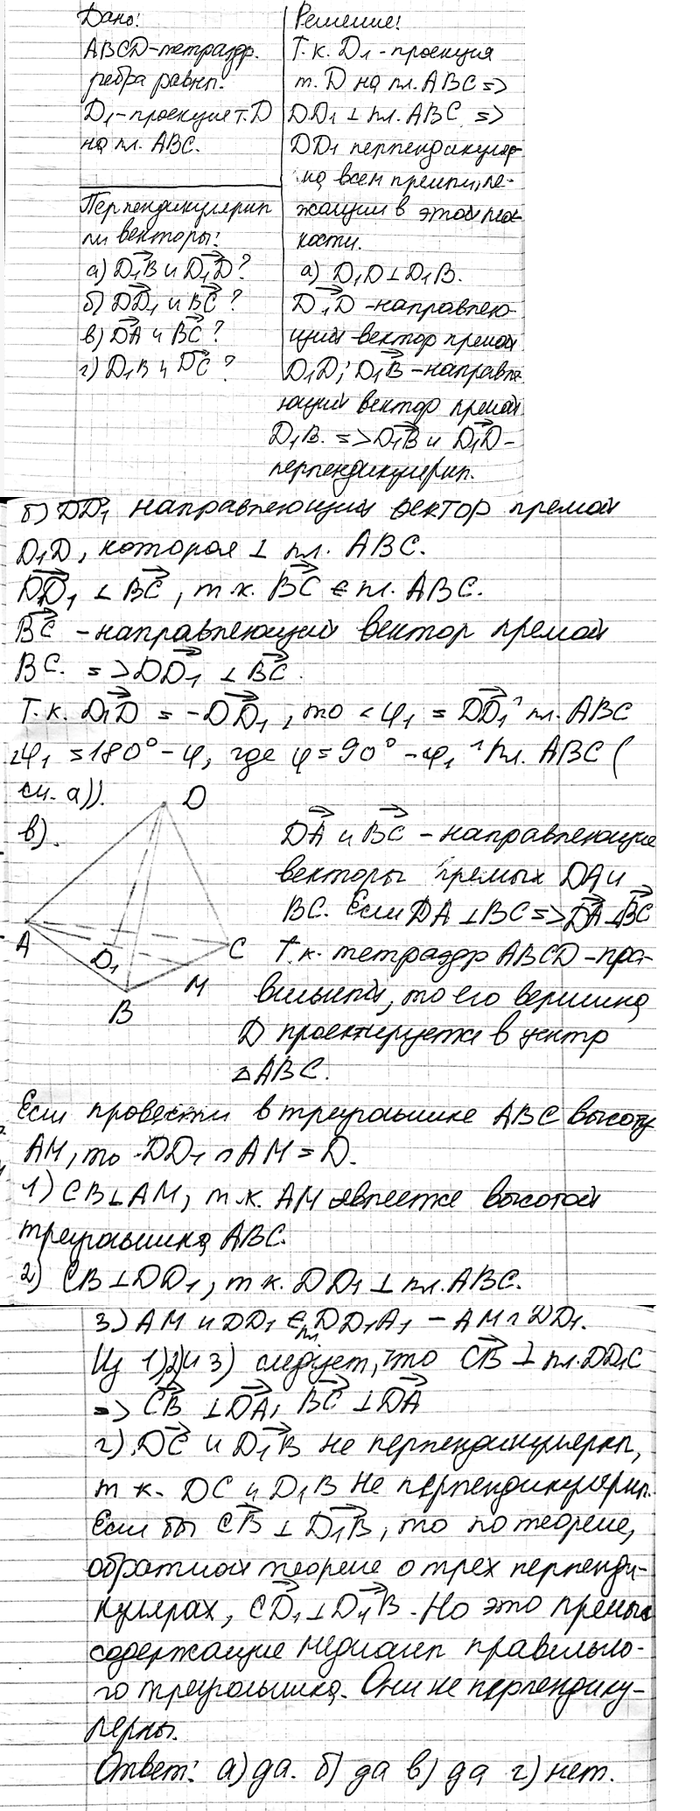 Дано:
ABCD-тетраэдр.
ребра равны.
D₁-проекция т. D
на пл. ABC.
Перпендикулярны
ли векторы:
а) D₁B и D₁D?
б) DD₁ и BC?
в) DA и BC?
г) D₁B и DC?
Решение:
Т.к. D₁ - проекция
т. D на пл. ABC =>
DD₁ ⊥ пл. ABC =>
DD₁ перпендикуляр-
на всем прямым, ле-
жащим в этой плос-
кости.
а) D₁D ⊥ D₁B.
D₁D - направляю-
щий вектор прямой
D₁D; D₁B - направля
ющий вектор прямой
D₁B. => D₁B и D₁D -
перпендикулярн.
б) DD₁ направляющий вектор прямой
D₁D, которая ⊥ пл. ABC.
DD₁ ⊥ BC, т.к. BC ∈ пл. ABC.
BC - направляющий вектор прямой
BC. => DD₁ ⊥ BC.
Т.к. D₁D = -DD₁, то <φ₁ = DD₁ ^ пл. ABC
∠φ₁ = 180° - φ, где φ = 90° - φ₁ ^ пл. ABC (
см. а)).
в).
D
A
D₁
C
B
M
DA и BC - направляющие
векторы прямых DA и
BC. Если DA ⊥ BC => DA ⊥ BC
Т.к. тетраэдр ABCD - пра-
вильный, то его вершина
D проектируется в центр
△ABC.
Если провести в треугольнике ABC высоту
AM, то DD₁ ∩ AM = D.
1) CB ⊥ AM, т.к. AM является высотой
треугольника ABC.
2) CB ⊥ DD₁, т.к. DD₁ ⊥ пл. ABC.
3) AM и DD₁ ∈ пл. DD₁A₁ - AM ∩ DD₁.
Из 1), 2) и 3) следует, что CB ⊥ пл. DD₁C
=> CB ⊥ DA, BC ⊥ DA
г) DC и D₁B не перпендикулярны,
т.к. DC и D₁B не перпендикулярн.
Если бы CB ⊥ D₁B, то по теореме,
обратной теореме о трех перпенди-
кулярах, CD₁ ⊥ D₁B. Но это прямые
содержащие медианы правильно-
го треугольника. Они не перпендику-
лярны.
Ответ: а) да. б) да в) да г) нет.